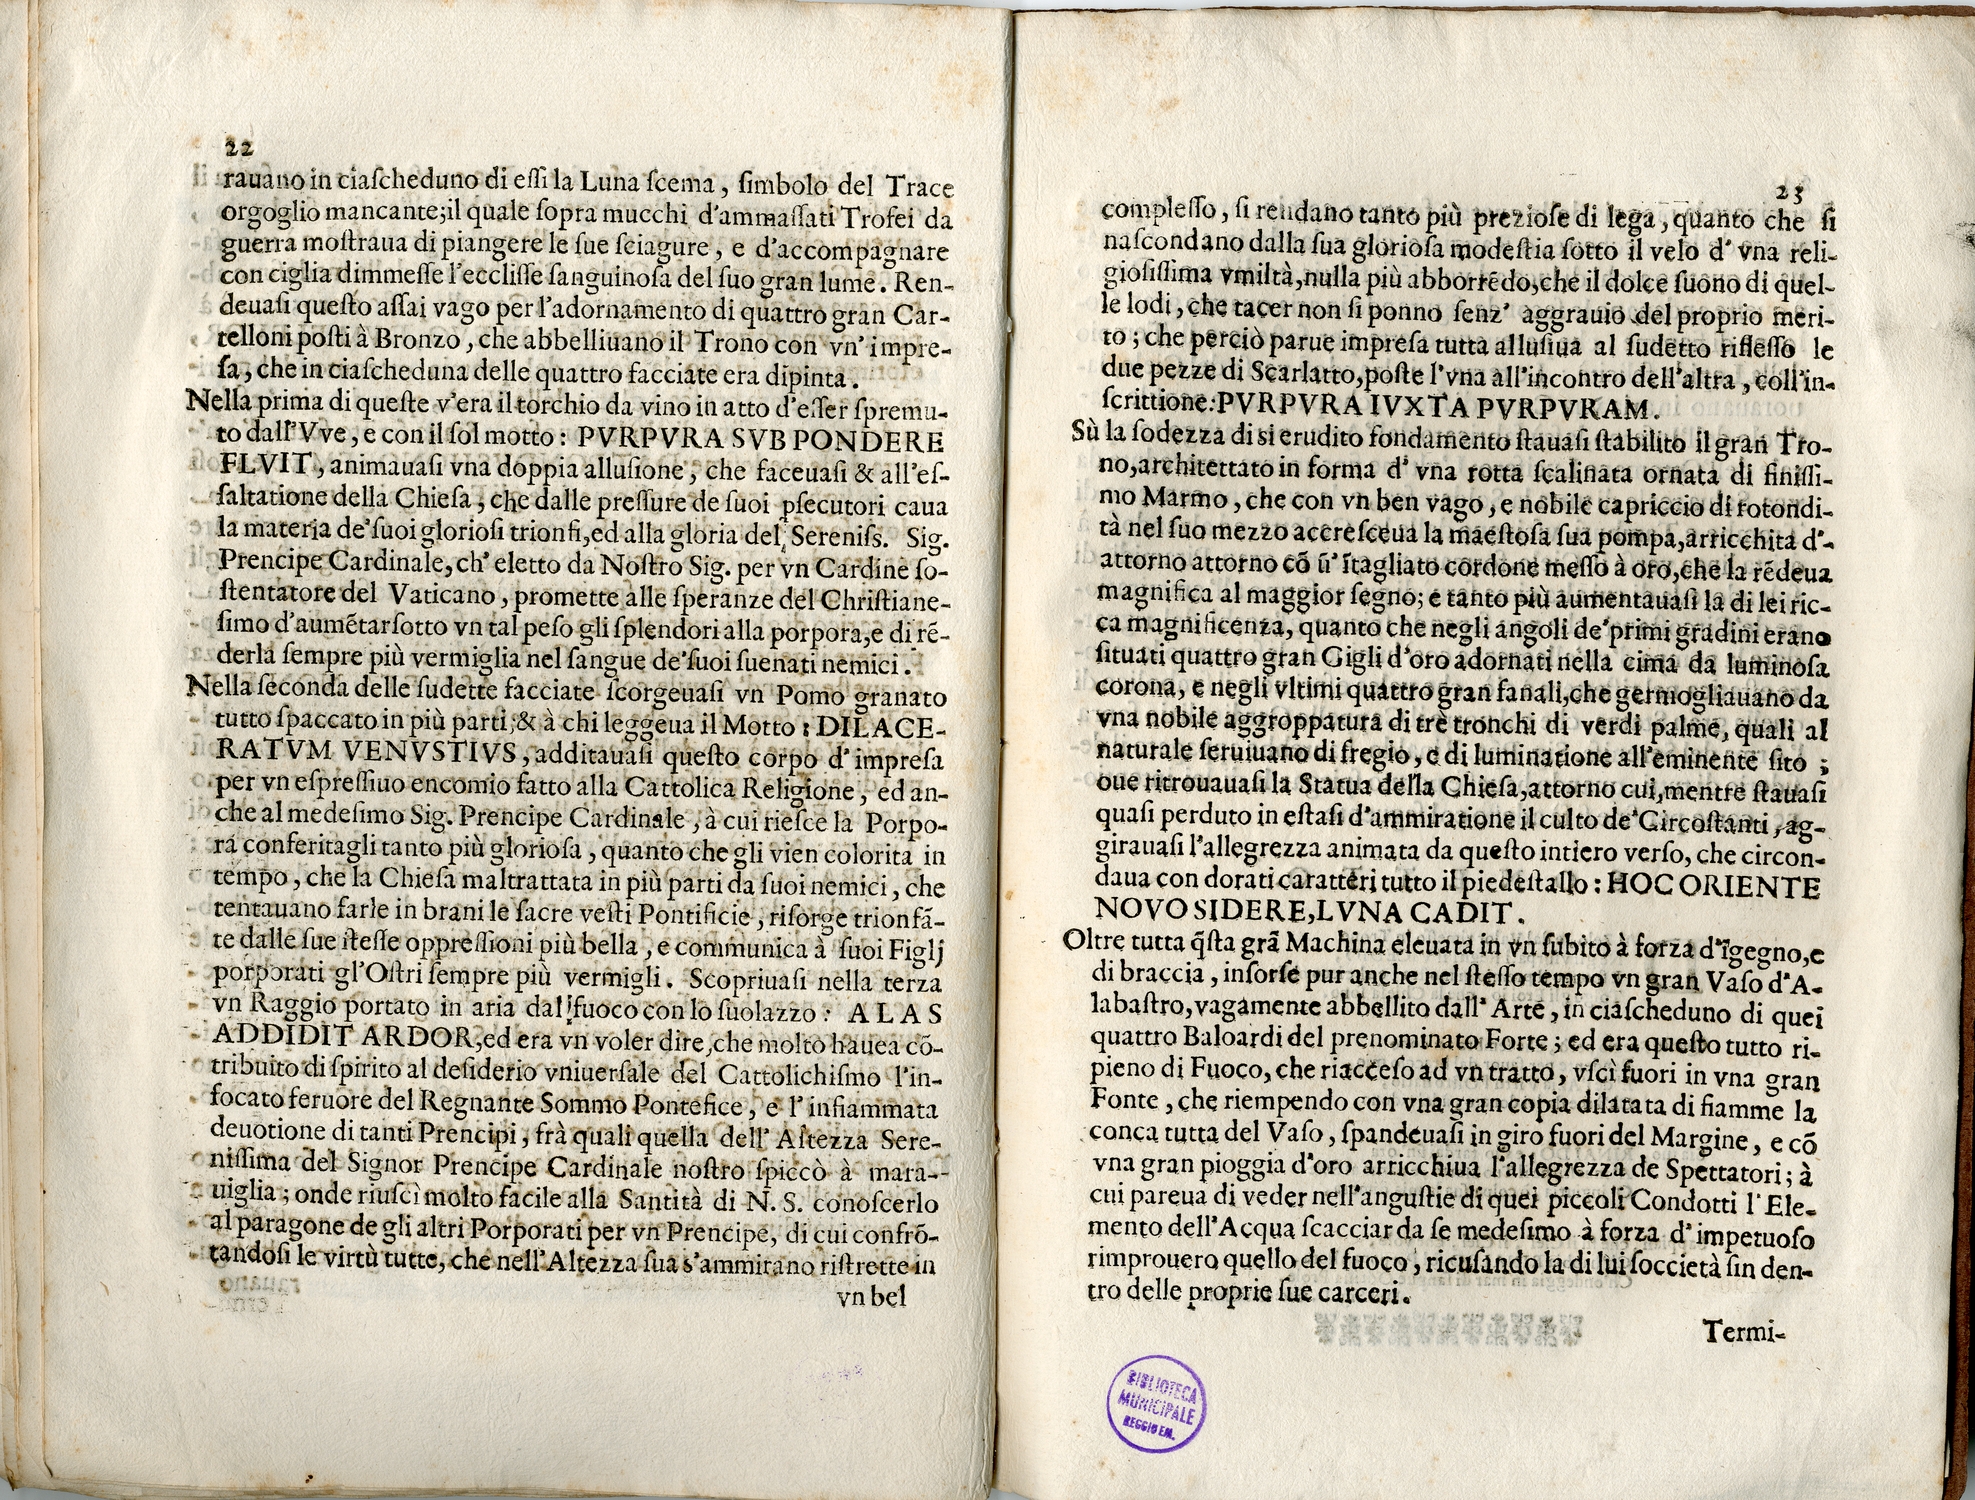 22
rauano in ciaſcheduno di eſſi la Luna ſcema, ſimbolo del Trace
orgoglio mancante;il quale ſopra mucchi d'ammaſſati Trofei da
guerra moſtraua di piangere le ſue ſciagure, e d'accompagnare
con ciglia dimmeſſe l'eccliſſe ſanguinoſa del ſuo gran lume. Ren-
deuaſi queſto aſſai vago per l'adornamento di quattro gran Car-
telloni poſti à Bronzo, che abbelliuano il Trono con vn' impre-
ſa, che in ciaſcheduna delle quattro facciate era dipinta.
Nella prima di queſte v'era il torchio da vino in atto d'eſſer ſpremu-
to dall'Vve, e con il ſol motto: PVRPVRA SVB PONDERE
FLVIT, animauaſi vna doppia alluſione, che faceuaſi & all'eſ-
ſaltatione della Chieſa, che dalle preſſure de ſuoi ꝑſecutori caua
la materia de'ſuoi glorioſi trionfi,ed alla gloria del Sereniſs. Sig.
Prencipe Cardinale, ch' eletto da Noſtro Sig. per vn Cardine ſo-
ſtentatore del Vaticano, promette alle ſperanze del Chriſtiane-
ſimo d'aumẽtar ſotto vn tal peſo gli ſplendori alla porpora,e di rẽ-
derla ſempre più vermiglia nel ſangue de'ſuoi ſuenati nemici.
Nella ſeconda delle ſudette facciate ſcorgeuaſi vn Pomo granato
tutto ſpaccato in più parti;& à chi leggeua il Motto: DILACE-
RATVM VENVSTIVS, additauaſi queſto corpo d' impreſa
per vn eſpreſſiuo encomio fatto alla Cattolica Religione, ed an-
che al medeſimo Sig. Prencipe Cardinale, à cui rieſce la Porpo-
ra conferitagli tanto più glorioſa, quanto che gli vien colorita in
tempo, che la Chieſa maltrattata in più parti da ſuoi nemici, che
tentauano farle in brani le ſacre veſti Pontificie, riſorge trionfã-
te dalle ſue iſteſſe oppreſſioni più bella, e communica à ſuoi Figlj
porporati gl'Oſtri ſempre più vermigli. Scopriuaſi nella terza
vn Raggio portato in aria dal fuoco con lo ſuolazzo: ALAS
ADDIDIT ARDOR,ed era vn voler dire,che molto hauea cõ-
tribuito di ſpirito al deſiderio vniuerſale del Cattolichiſmo l'in-
focato feruore del Regnante Sommo Pontefice, e l' infiammata
deuotione di tanti Prencipi, frà quali quella dell' Altezza Sere-
niſſima del Signor Prencipe Cardinale noſtro ſpiccò à mara-
uiglia; onde riuſcì molto facile alla Santità di N. S. conoſcerlo
al paragone de gli altri Porporati per vn Prencipe, di cui confrõ-
tandoſi le virtù tutte, che nell'Altezza ſua s'ammirano riſtrette in
vn bel
23
compleſſo, ſi rendano tanto più prezioſe di lega, quanto che ſi
naſcondano dalla ſua glorioſa modeſtia ſotto il velo d' vna reli-
gioſiſſima vmiltà,nulla più abborrẽdo,che il dolce ſuono di quel-
le lodi, che tacer non ſi ponno ſenz' aggrauio del proprio meri-
to; che perciò parue impreſa tutta alluſiua al ſudetto rifleſſo le
due pezze di Scarlatto,poſte l'vna all'incontro dell'altra, coll'in-
ſcrittione:PVRPVRA IVXTA PVRPVRAM.
Sù la ſodezza di sì erudito fondamento ſtauaſi ſtabilito il gran Tro-
no,architettato in forma d' vna rotta ſcalinata ornata di finiſſi-
mo Marmo, che con vn ben vago, e nobile capriccio di rotondi-
tà nel ſuo mezzo accreſceua la maeſtoſa ſua pompa,arricchita d'-
attorno attorno cõ ũ' ĩtagliato cordone meſſo à oro,che la rẽdeua
magnifica al maggior ſegno; e tanto più aumentauaſi la di lei ric-
ca magnificenza, quanto che negli angoli de'primi gradini erano
ſituati quattro gran Gigli d'oro adornati nella cima da luminoſa
corona, e negli vltimi quattro gran fanali,che germogliauano da
vna nobile aggroppatura di trè tronchi di verdi palme, quali al
naturale ſeruiuano di fregio, e di luminatione all'eminente ſito;
oue ritrouauaſi la Statua della Chieſa,attorno cui,mentre ſtauaſi
quaſi perduto in eſtaſi d'ammiratione il culto de'Circoſtanti, ag-
girauaſi l'allegrezza animata da queſto intiero verſo, che circon-
daua con dorati caratteri tutto il piedeſtallo: HOC ORIENTE
NOVO SIDERE,LVNA CADIT.
Oltre tutta q̃ſta grã Machina eleuata in vn ſubito à forza d'ĩgegno,e
di braccia, inſorſe pur anche nel ſteſſo tempo vn gran Vaſo d'A-
labaſtro,vagamente abbellito dall' Arte, in ciaſcheduno di quei
quattro Baloardi del prenominato Forte; ed era queſto tutto ri-
pieno di Fuoco, che riacceſo ad vn tratto, vſcì fuori in vna gran
Fonte, che riempendo con vna gran copia dilatata di fiamme la
conca tutta del Vaſo, ſpandeuaſi in giro fuori del Margine, e cõ
vna gran pioggia d'oro arricchiua l'allegrezza de Spettatori; à
cui pareua di veder nell'anguſtie di quei piccoli Condotti l'Ele-
mento dell'Acqua ſcacciar da ſe medeſimo à forza d' impetuoſo
rimprouero quello del fuoco, ricuſando la di lui ſoccietà ſin den-
tro delle proprie ſue carceri.
Termi-
BIBLIOTECA
MUNICIPALE
REGGIO EM.